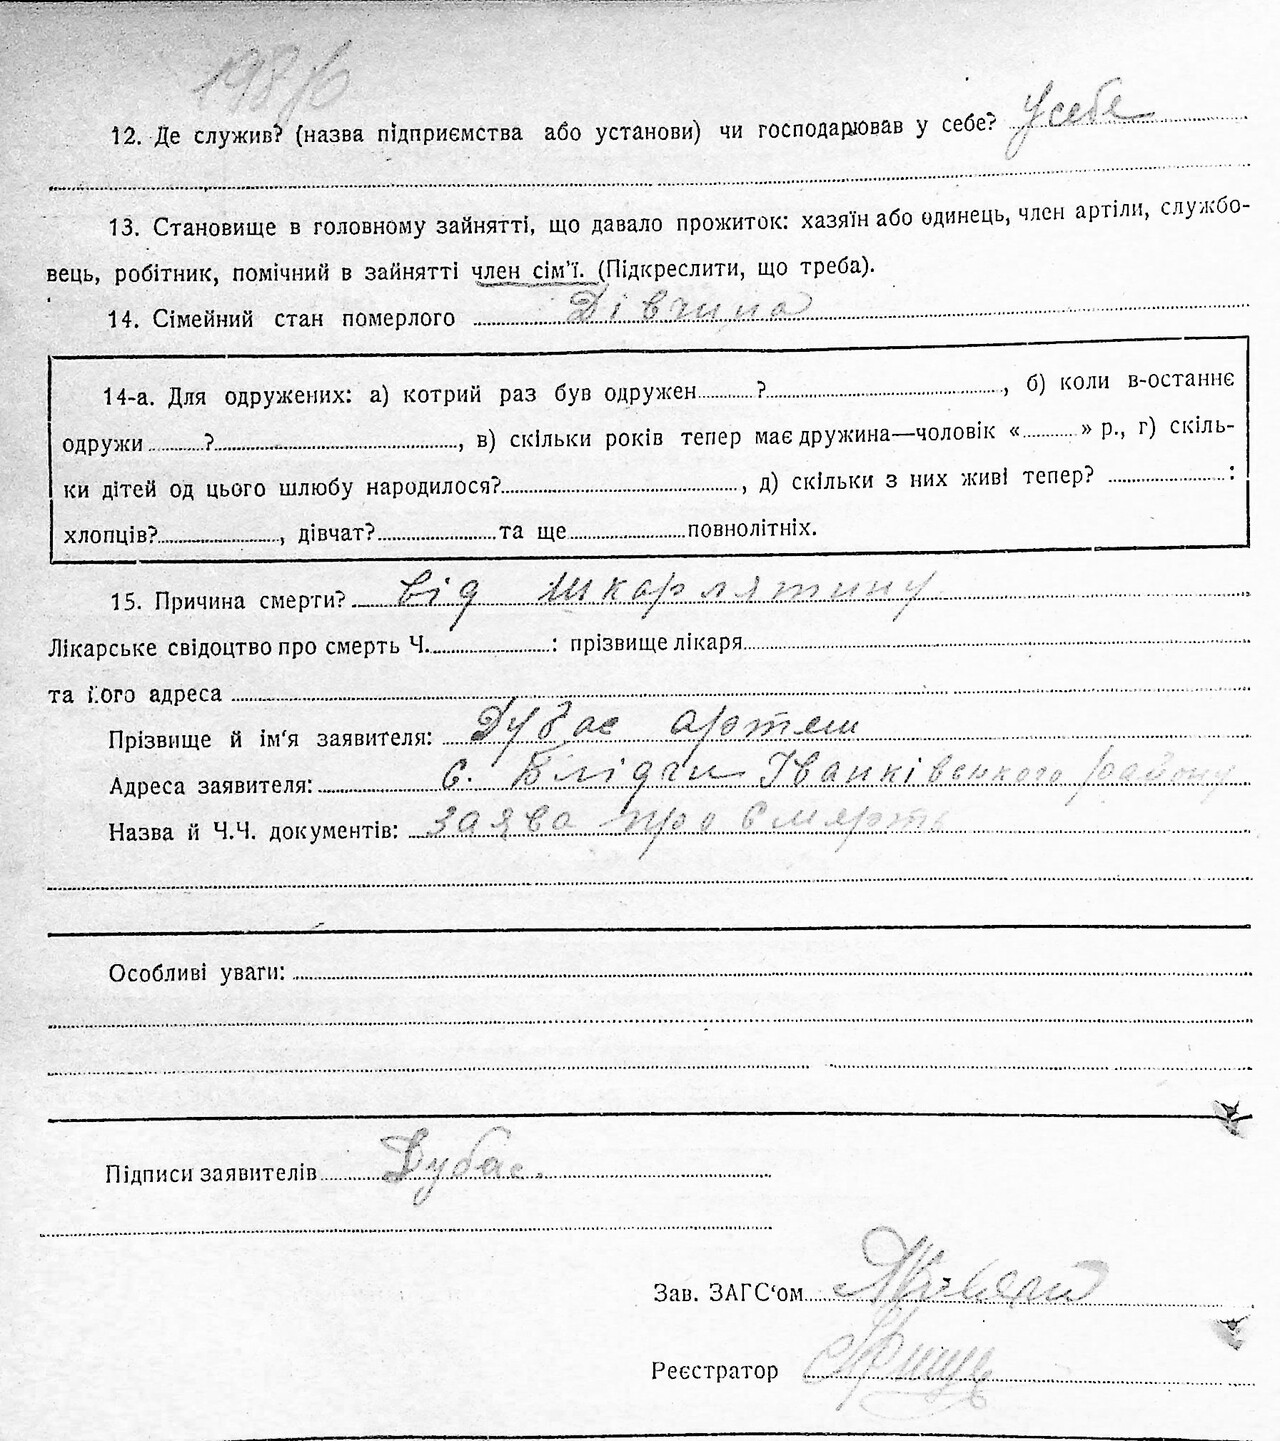 198/6
12. Де служив? (назва підприємства або установи) чи господарював у себе? У себе
13. Становище в головному зайнятті, що давало прожиток: хазяїн або одинець, член артілі, службо-
вець, робітник, помічний в зайнятті член сім'ї. (Підкреслити, що треба).
14. Сімейний стан померлого Дівчина
14-а. Для одружених: а) котрий раз був одружен ? , б) коли в-останнє
одружи ? , в) скільки років тепер має дружина—чоловік « » р., г) скіль-
ки дітей од цього шлюбу народилося? , д) скільки з них живі тепер? :
хлопців? , дівчат? та ще повнолітніх.
15. Причина смерти? від шкарлятину
Лікарське свідоцтво про смерть Ч. : прізвище лікаря
та його адреса
Прізвище й ім'я заявителя: Дубас артем
Адреса заявителя: с. Блідчи Іванківського району
Назва й Ч.Ч. документів: заява про смерть
Особливі уваги:
Підписи заявителів Дубас.
Зав. ЗАГС'ом
Реєстратор